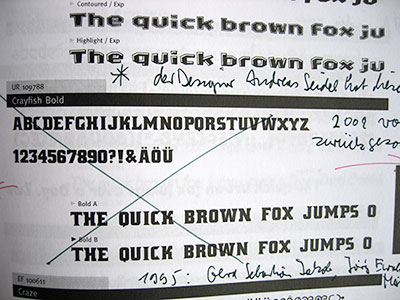 Contoured / Exp
The quick brown fox ju
Highlight / Exp
The quick brown fox ju
* der Designer Andreas Seidel hat
UR 109788
Crayfish Bold
ABCDEFGHIJKLMNOPQRSTUVWXYZ
2001
1234567890?!&ÄÖÜ
Bold A
THE QUICK BROWN FOX JUMPS O
Bold B
THE QUICK BROWN FOX JUMPS O
1995: Gerd Sebastian Jörg
EF 100611
Craze